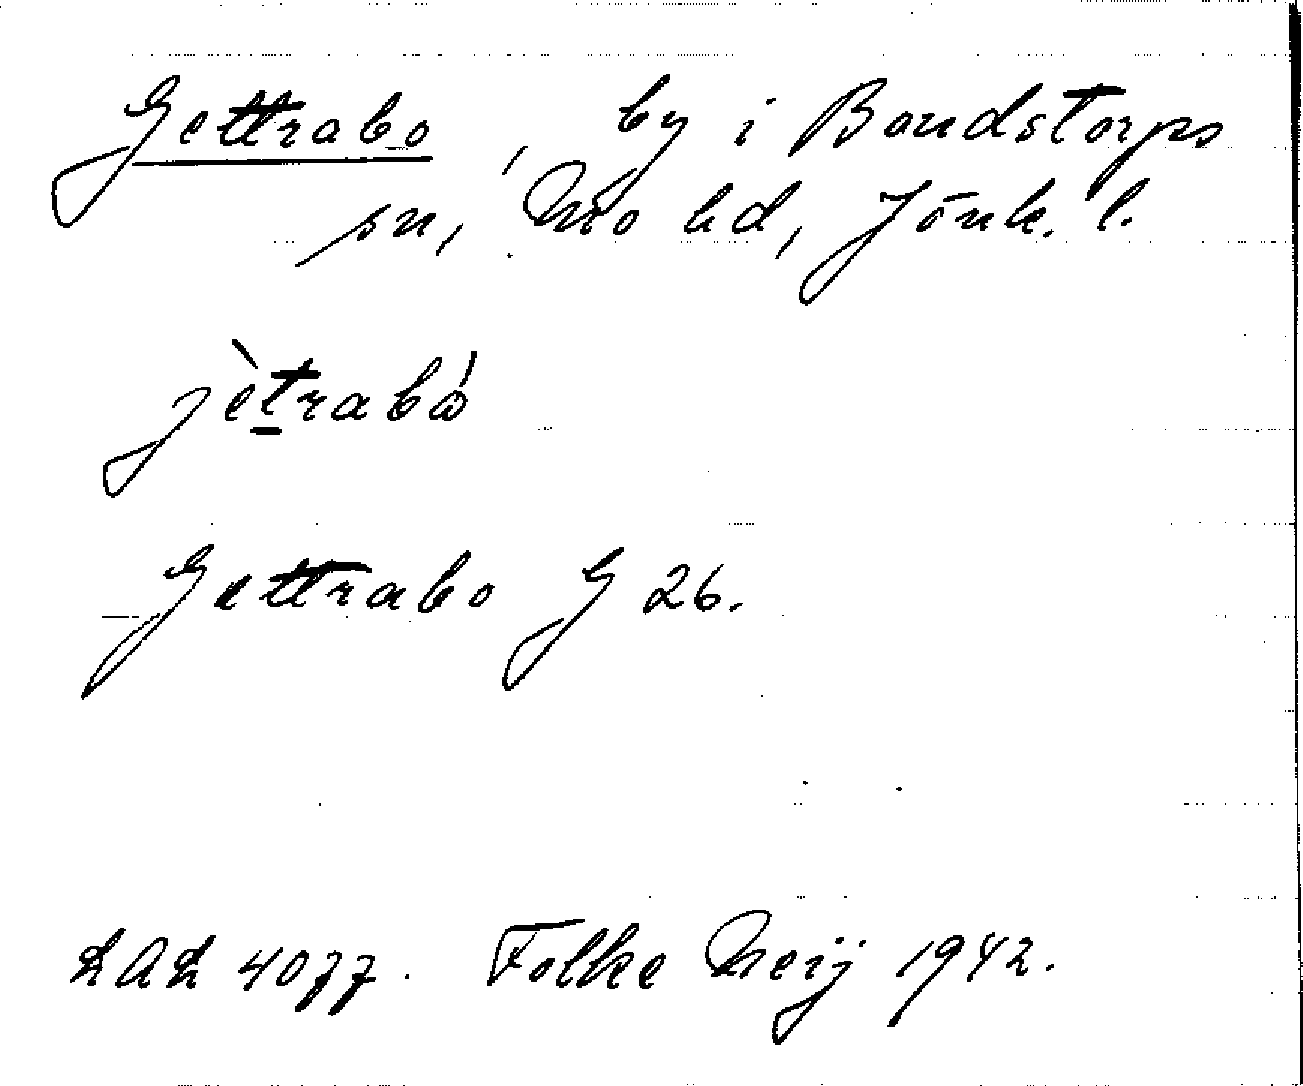 Gettrabo, by i Bondstorps
sn, Mo hd, Jönk. l.
jètrabó
Gettrabo G 26.
LAL 4077. Folke Neij 1942.